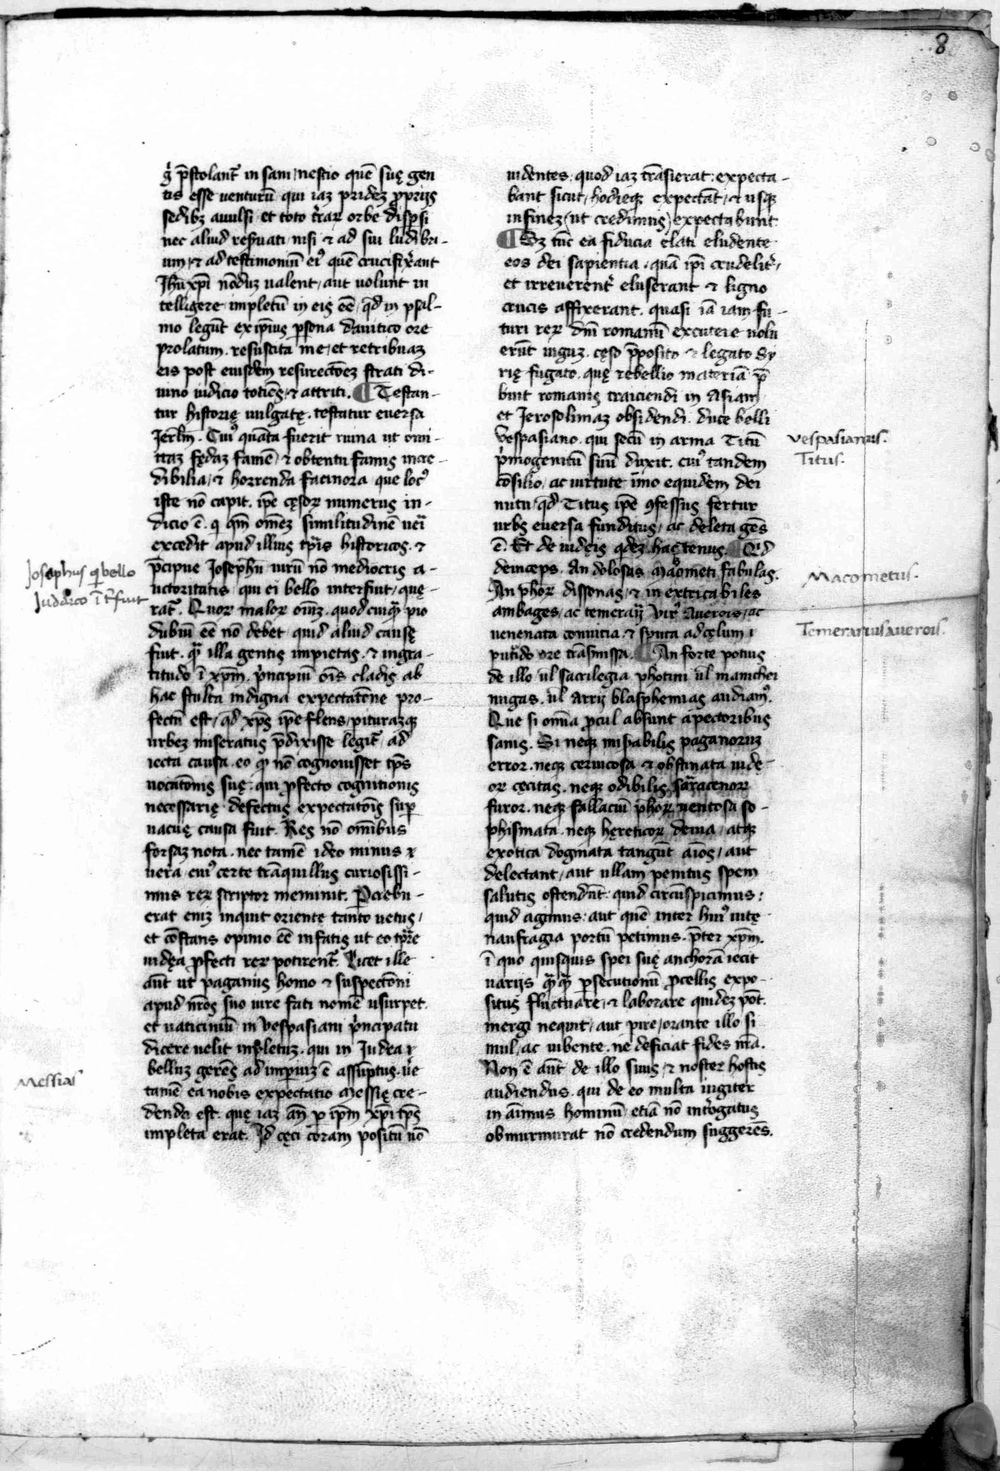 8
q̄ p̄stolant᷑ in sani, nescio quē suę gen
tis esse venturū qui iaz pridez ꝓprijs
sedibꝫ avulsi et toto t̄rar̄ orbe disꝑsi
nec aliud reẜuati, nisi & ad sui ludibri-
um, & ad testimoniū ei᷒ quē crucifix̄ant
Jhū xp̄i nōduz valent, aut volunt in
telligere impletū in eis eē, qd̄ in psal-
mo legūt ex ip̄ius ꝑsona davitico ore
prolatum. resuscita me, et retribuaz
eis post eiusdem resurectōeꝫ strati di-
vino iudicio totiēs, & attriti. ¶ Testan-
tur historię vulgatę. testatur eversa
Jer̄lm̄. Cui᷒ quāta fuerit ruina ut omi-
ttaz fędaz famē, & obtentu famis incre-
dibilia, & horrenda facinora que loc᷒
iste nō capit. ip̄e cęsor̄ numerus in-
dicio ē. q qm̄ omēz similitudinē veri
excedit apud illius tꝑis historicos. &
p̄cipue Josephū virū nō mediocris a-
uctoritatis, qui ei bello interfuit, quę-
rat᷑. Quor̄ malor̄ oīuz, quod cuiqꝫ pio
dubiū eē nō debet quid aliud causę
fuit. qꝫ illa gentis impietas. & ingra-
titudo ī xp̄m. p̄ncipiū oīs cladis ab
hac stulta indigna expectatōne pro-
fectū est, ad xp̄s ip̄e flens, piturazqꝫ
urbez miseratus p̄dixisse legit᷑, ad
iecta causa. eo qꝫ nō cognovisset tp̄s
vocatōnis suę. qui ꝓfecto cognitionis
necessarię defectus expectatōis suꝑ
vacuę causa fuit. Res nō omībus
forsaz nota. nec tamē ideo minus &
vera, cui᷒ certe trāquillus curiosissi-
mus rer̄ scriptor meminit. Ꝑcrebu-
erat eniz inquit oriente tanto vetus,
et cōstans opinio eē in fatis ut eo tꝑre
iudęa ꝓfecti rer̄ potirent᷑. Licet ille
aūt ut paganus homo & suspectōni
apud nr̄os suo iure fati nomē usurpet.
et vaticiniū in Vespasiani p̄ncipatu
dicere velit impletuz. qui in Judea &
belluz gerēs ad imꝑiuz ē assūptus, v̄e
tamē ea nobis expectatio Messię cre-
denda est. quę iaz an̄ ꝑ ip̄m xp̄i tp̄s
impleta erat. Id cęci coram positū nō
videntes. quod iaz trāsierat. expecta-
bant sicut, hodieqꝫ expectāt, & usqꝫ
in finez, ut credimus, expectabunt
¶ Sꝫ tūc ea fiducia elati eludente
eos dei sapientia. quā ip̄i crudelit᷑,
et irreverent᷑ eluserant & ligno
crucis affixerant. quasi iā iam fu-
turi rer̄ dn̄i romanū excutere volu
erūt iuguz. cęso p̄posito & legato Sy
rię fugato. quę rebellio materiā p̄
buit romanis traiciendi in Asiam
et Jerosolimaz obsidendi. duce belli
Vespasiano. qui secū in arma Titū
p̄mogenitū suū duxit. cui᷒ tandem
cōsilio, ac virtute imo equidem dei
nutu, qd̄ Titus ip̄e ꝯfessus fertur
urbs eversa funditus, ac deleta gēs
ē. Et de iudeis qdez hactenus. ¶ Qd̄
deinceps. An dolosas Maometi fabulas.
An ph̄or̄ dissonas, & inextricabiles
ambages, ac temerarij viri Averois, ac
venenata convitia & sputa ad cęlum
putrido ore trāsmissa. ¶ An forte potius
de illo vl̄ sacrilegia photini vl̄ manichei
nugas. vl̄ Arrij blasphemias audiam᷒.
Que si omīa ꝓcul absunt a pectoribus
sanis. Si neqꝫ misabilis paganoruz
error. neqꝫ cervicosa & obstinata iudę-
or̄ cęcitas. neqꝫ odibilis saracenor̄
furor. neqꝫ fallaciū ph̄or̄ ventosa so-
phismata. neqꝫ hęreticor̄ devia, atqꝫ
exotica dogmata tangūt aīos, aut
delectant, aut ullam penitus spem
salutis ostendūt. quid circūspicimus:
quid agimus. aut quē inter hui᷒ vitę
naufragia portū petimus. p̄ter xp̄m.
ī quo quisquis spei suę anchorā iecit
varijs qꝫqꝫ ꝑsecutionū ꝓcellis expo-
situs fluctuare, & laborare quidez pōt.
mergi nequit, aut ꝑire, orante illo si
mul, ac iubente. ne deficiat fides n̄ra.
Non ē aūt de illo suus, & noster hostis
audiendus. qui de eo multa iugiter
in aīmus hominū etiā nō int᷑rogatus
obmurmurat nō credendum suggerēs.
Josephus qͥ bello
Judaico īt᷑fuit
Messias
Vespasianus.
Titus.
Macometus.
Temerariusaverois.